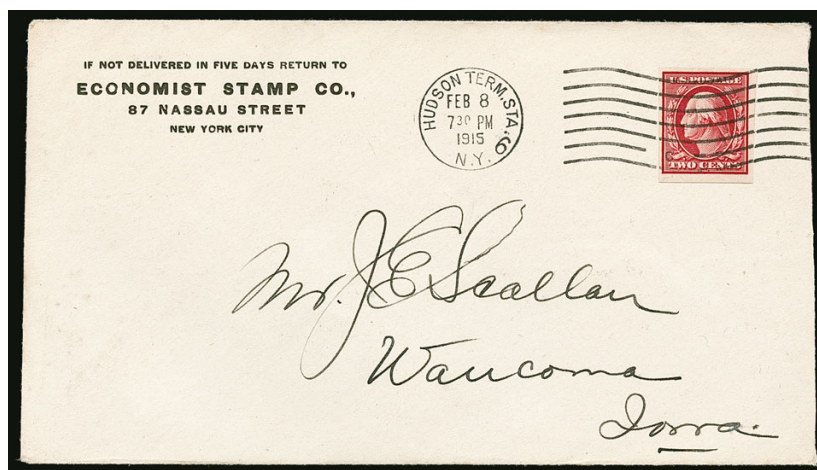 IF NOT DELIVERED IN FIVE DAYS RETURN TO
ECONOMIST STAMP CO.,
87 NASSAU STREET
NEW YORK CITY
HUDSON TERM. STA. 6
FEB 8
730 PM
1915
N.Y.
U.S. POSTAGE
TWO CENTS
Mr. J E Scallan
Waucoma
Iowa.